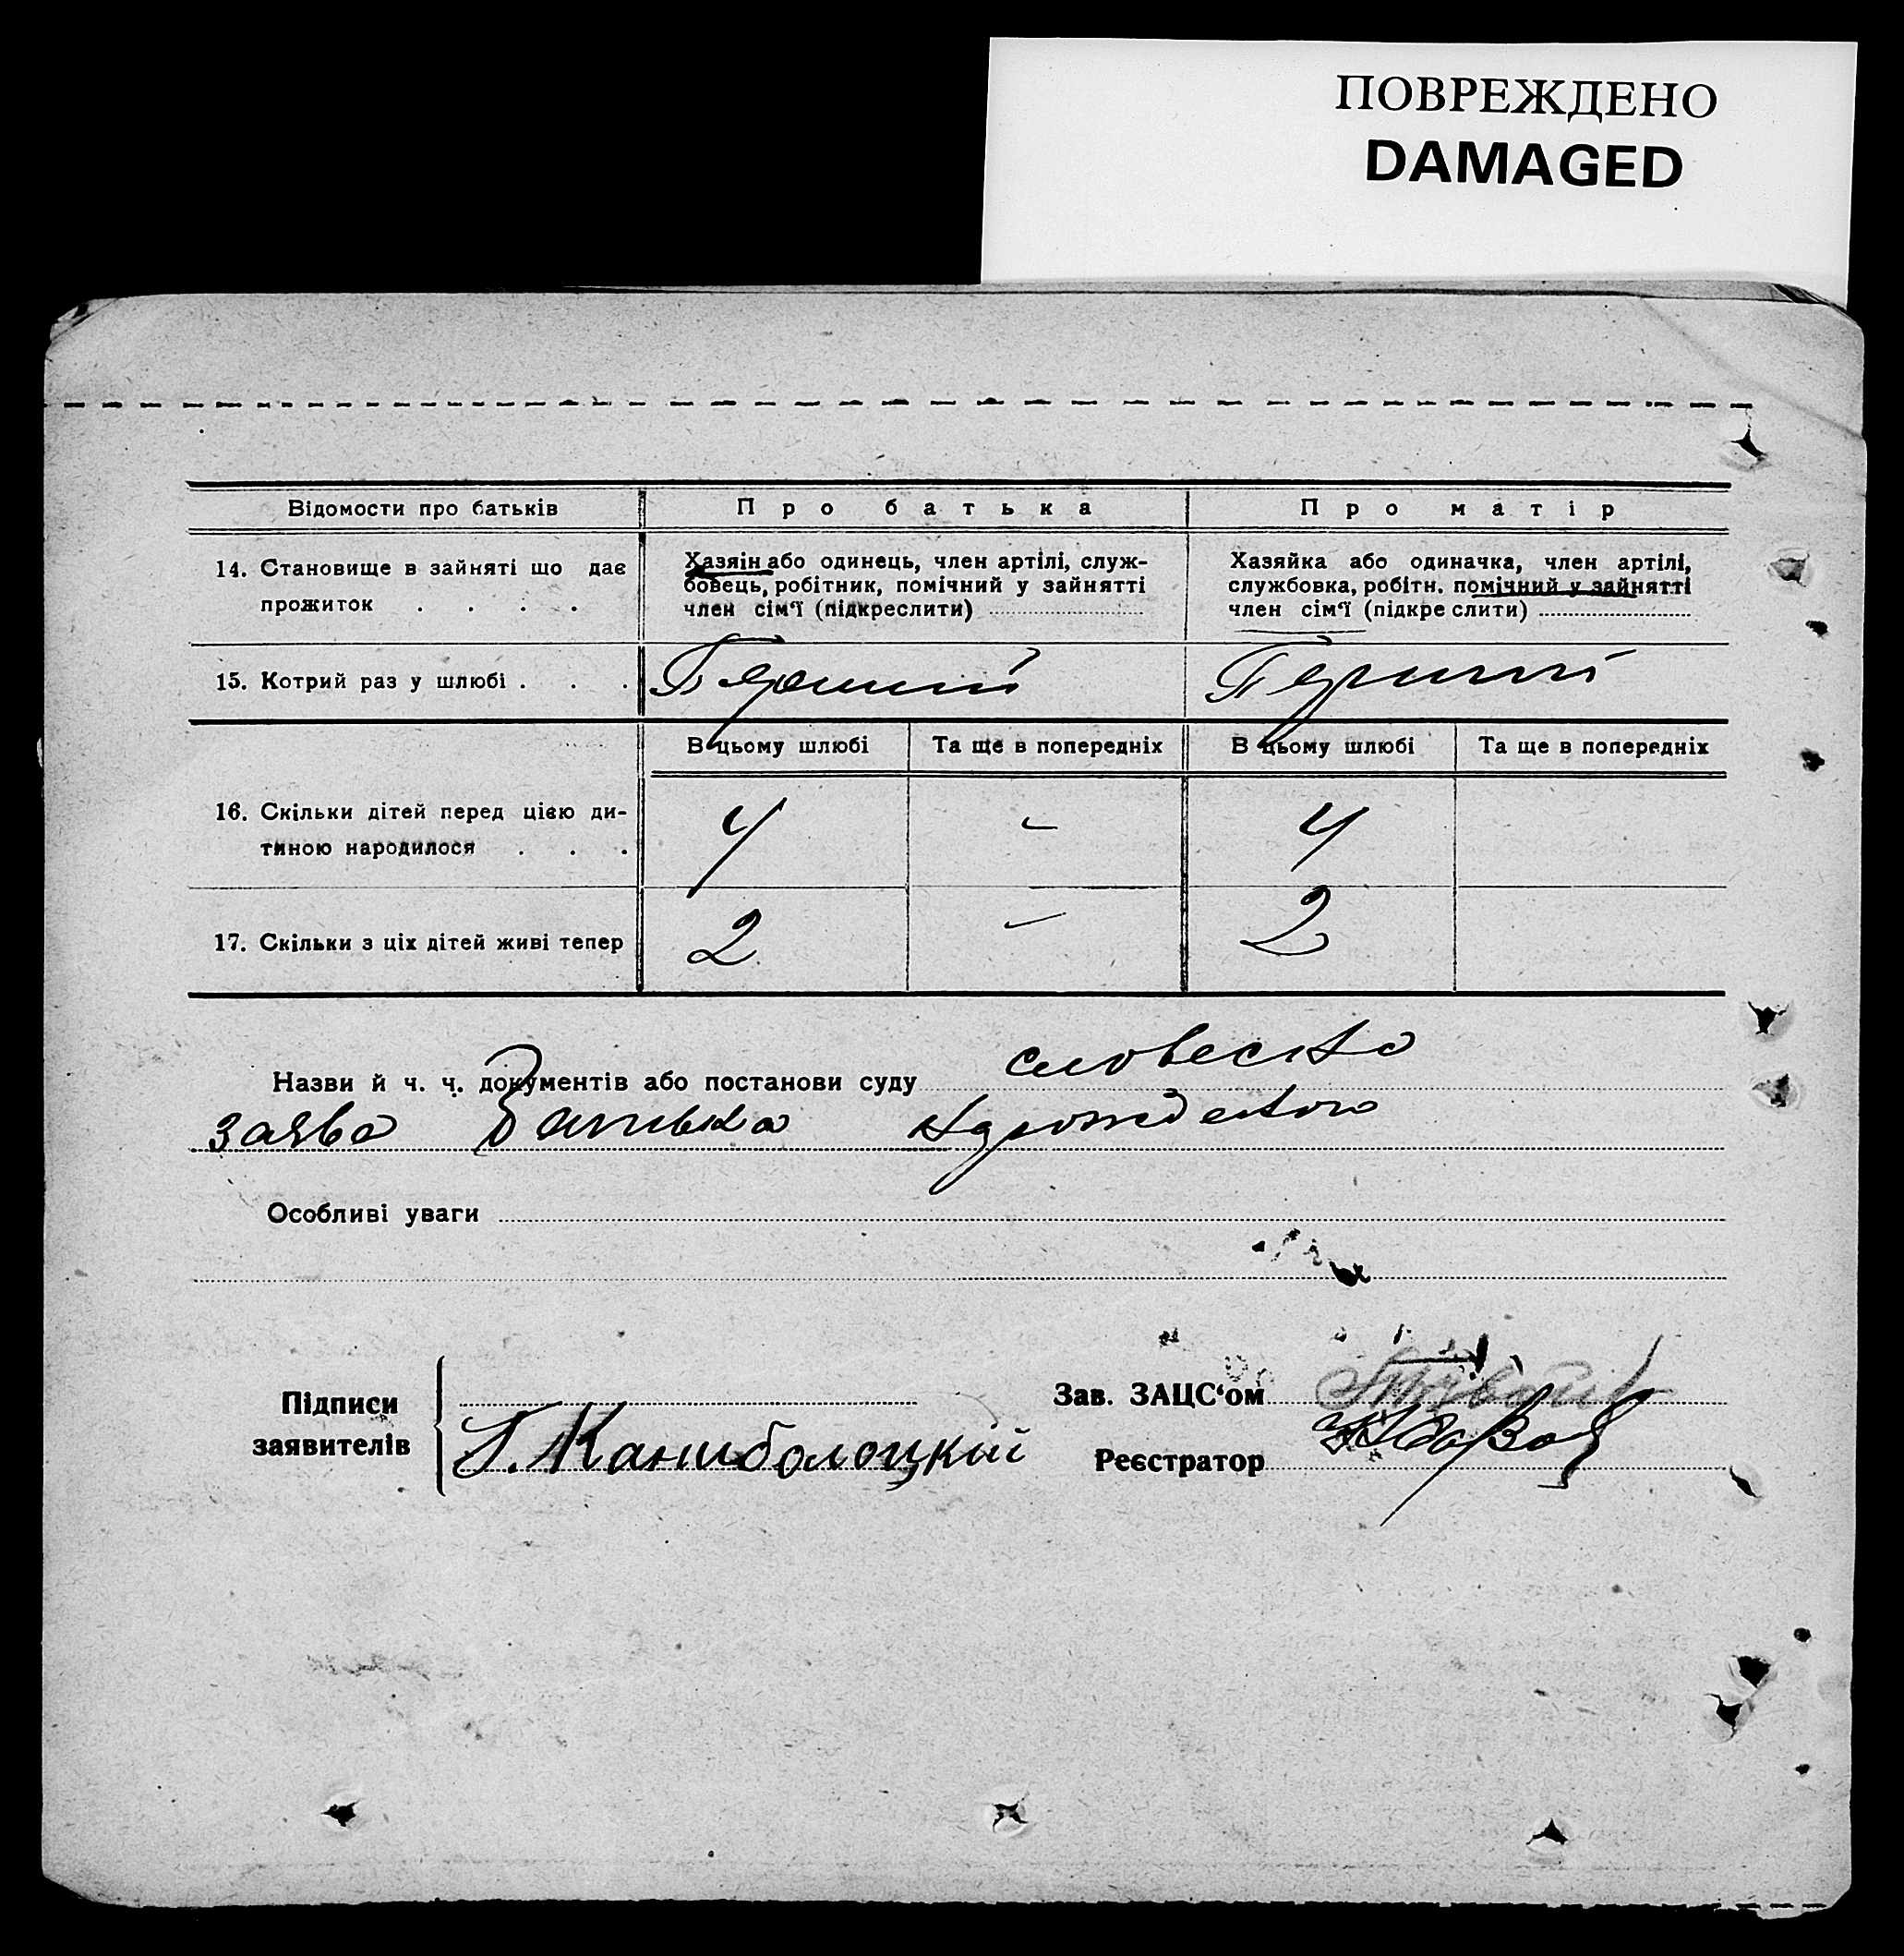 ПОВРЕЖДЕНО
DAMAGED
Відомости про батьків
Про батька
Про матір
14. Становище в зайняті що дає
прожиток . . . .
Хазяін або одинець, член артілі, служ-
бовець, робітник, помічний у зайнятті
член сім'ї (підкреслити)
Хазяйка або одиначка, член артілі,
службовка, робітн. помічний у зайнятті
член сім'ї (підкреслити)
15. Котрий раз у шлюбі . . .
Перший
Перший
В цьому шлюбі
Та ще в попередніх
В цьому шлюбі
Та ще в попередніх
16. Скільки дітей перед цією ди-
тиною народилося . . .
4
-
4
17. Скільки з ціх дітей живі тепер
2
-
2
Назви й ч. ч. документів або постанови суду словесна
заява батька
Особливі уваги
Підписи
заявителів
Г. Каниболоцкій
Зав. ЗАЦС‘ом
Реєстратор